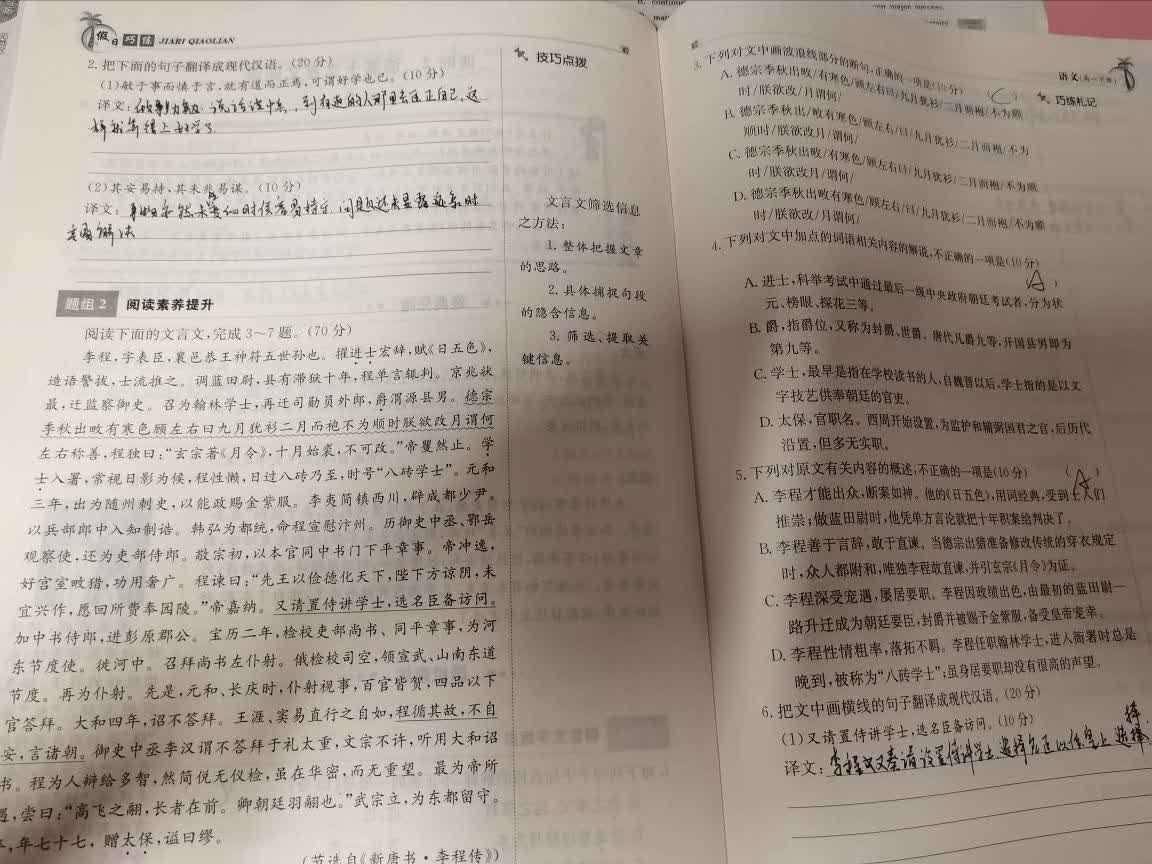 假日巧练 JIARI QIAOLIAN
2.把下面的句子翻译成现代汉语。(20分)
(1)敏于事而慎于言,就有道而正焉,可谓好学也已。(10分)
译文:
(2)其安易持,其未兆易谋。(10分)
译文:
题组2 阅读素养提升
阅读下面的文言文,完成3~7题。(70分)
李程,字表臣,襄邑恭王神符五世孙也。擢进士宏辞,赋《日五色》,
造语警拔,士流推之。调蓝田尉,县有滞狱十年,程单言辄判。京兆状
最,迁监察御史。召为翰林学士,再迁司勋员外郎,爵渭源县男。德宗
季秋出畋有寒色顾左右曰九月犹衫二月而袍不为顺时朕欲改月谓何
左右称善,程独曰:“玄宗著《月令》,十月始裘,不可改。”帝矍然止。学
士入署,常视日影为候,程性懒,日过八砖乃至,时号“八砖学士”。元和
三年,出为随州刺史,以能政赐金紫服。李夷简镇西川,辟成都少尹。
以兵部郎中入知制诰。韩弘为都统,命程宣慰汴州。历御史中丞、鄂岳
观察使,还为吏部侍郎。敬宗初,以本官同中书门下平章事。帝冲逸,
好宫室畋猎,功用奢广。程谏曰:“先王以俭德化天下,陛下方谅阴,未
宜兴作,愿回所费奉园陵。”帝嘉纳。又请置侍讲学士,选名臣备访问。
加中书侍郎,进彭原郡公。宝历二年,检校吏部尚书、同平章事,为河
东节度使。徙河中。召拜尚书左仆射。俄检校司空,领宣武、山南东道
节度。再为仆射。先是,元和、长庆时,仆射视事,百官皆贺,四品以下
官答拜。大和四年,诏不答拜。王涯、窦易直行之自如,程循其故,不自
安,言诸朝。御史中丞李汉谓不答拜于礼太重,文宗不许,听用大和诏
书。程为人辩给多智,然简侻无仪检,虽在华密,而无重望。最为帝所
遇,尝曰:“高飞之翮,长者在前。卿朝廷羽翮也。”武宗立,为东都留守。
年七十七,赠太保,谥曰缪。
(节选自《新唐书·李程传》)
技巧点拨
文言文筛选信息
之方法:
1.整体把握文章
的思路。
2.具体捕捉句段
的隐含信息。
3.筛选、提取关
键信息。
语文
巧练札记
3.下列对文中画波浪线部分的断句,正确的一项是(10分)
( C )
A.德宗季秋出畋/有寒色/顾左右曰/九月犹衫/二月而袍/不为顺
时/朕欲改/月谓何/
B.德宗季秋出/畋有寒色/顾左右/曰/九月犹衫/二月而袍/不为
顺时/朕欲改月/谓何/
C.德宗季秋出畋/有寒色/顾左右曰/九月犹衫/二月而袍/不为顺
时/朕欲改月/谓何/
D.德宗季秋出畋有寒色/顾左右/曰/九月犹衫/二月而袍/不为顺
时/朕欲改/月谓何/
4.下列对文中加点的词语相关内容的解说,不正确的一项是(10分)
( A )
A.进士,科举考试中通过最后一级中央政府朝廷考试者,分为状
元、榜眼、探花三等。
B.爵,指爵位,又称为封爵、世爵。唐代凡爵九等,开国县男即为
第九等。
C.学士,最早是指在学校读书的人,自魏晋以后,学士指的是以文
字技艺供奉朝廷的官吏。
D.太保,官职名。西周开始设置,为监护和辅弼国君之官,后历代
沿置,但多无实职。
5.下列对原文有关内容的概述,不正确的一项是(10分) ( A )
A.李程才能出众,断案如神。他的《日五色》,用词经典,受到士人们
推崇;做蓝田尉时,他凭单方言论就把十年积案给判决了。
B.李程善于言辞,敢于直谏。当德宗出猎准备修改传统的穿衣规定
时,众人都附和,唯独李程敢直谏,并引玄宗《月令》为证。
C.李程深受宠遇,屡居要职。李程因政绩出色,由最初的蓝田尉一
路升迁成为朝廷要臣,封爵并被赐予金紫服,备受皇帝宠幸。
D.李程性情粗率,落拓不羁。李程任职翰林学士,进入衙署时总是
晚到,被称为“八砖学士”;虽身居要职却没有很高的声望。
6.把文中画横线的句子翻译成现代汉语。(20分)
(1)又请置侍讲学士,选名臣备访问。(10分)
译文:李程又奏请设置侍讲学士